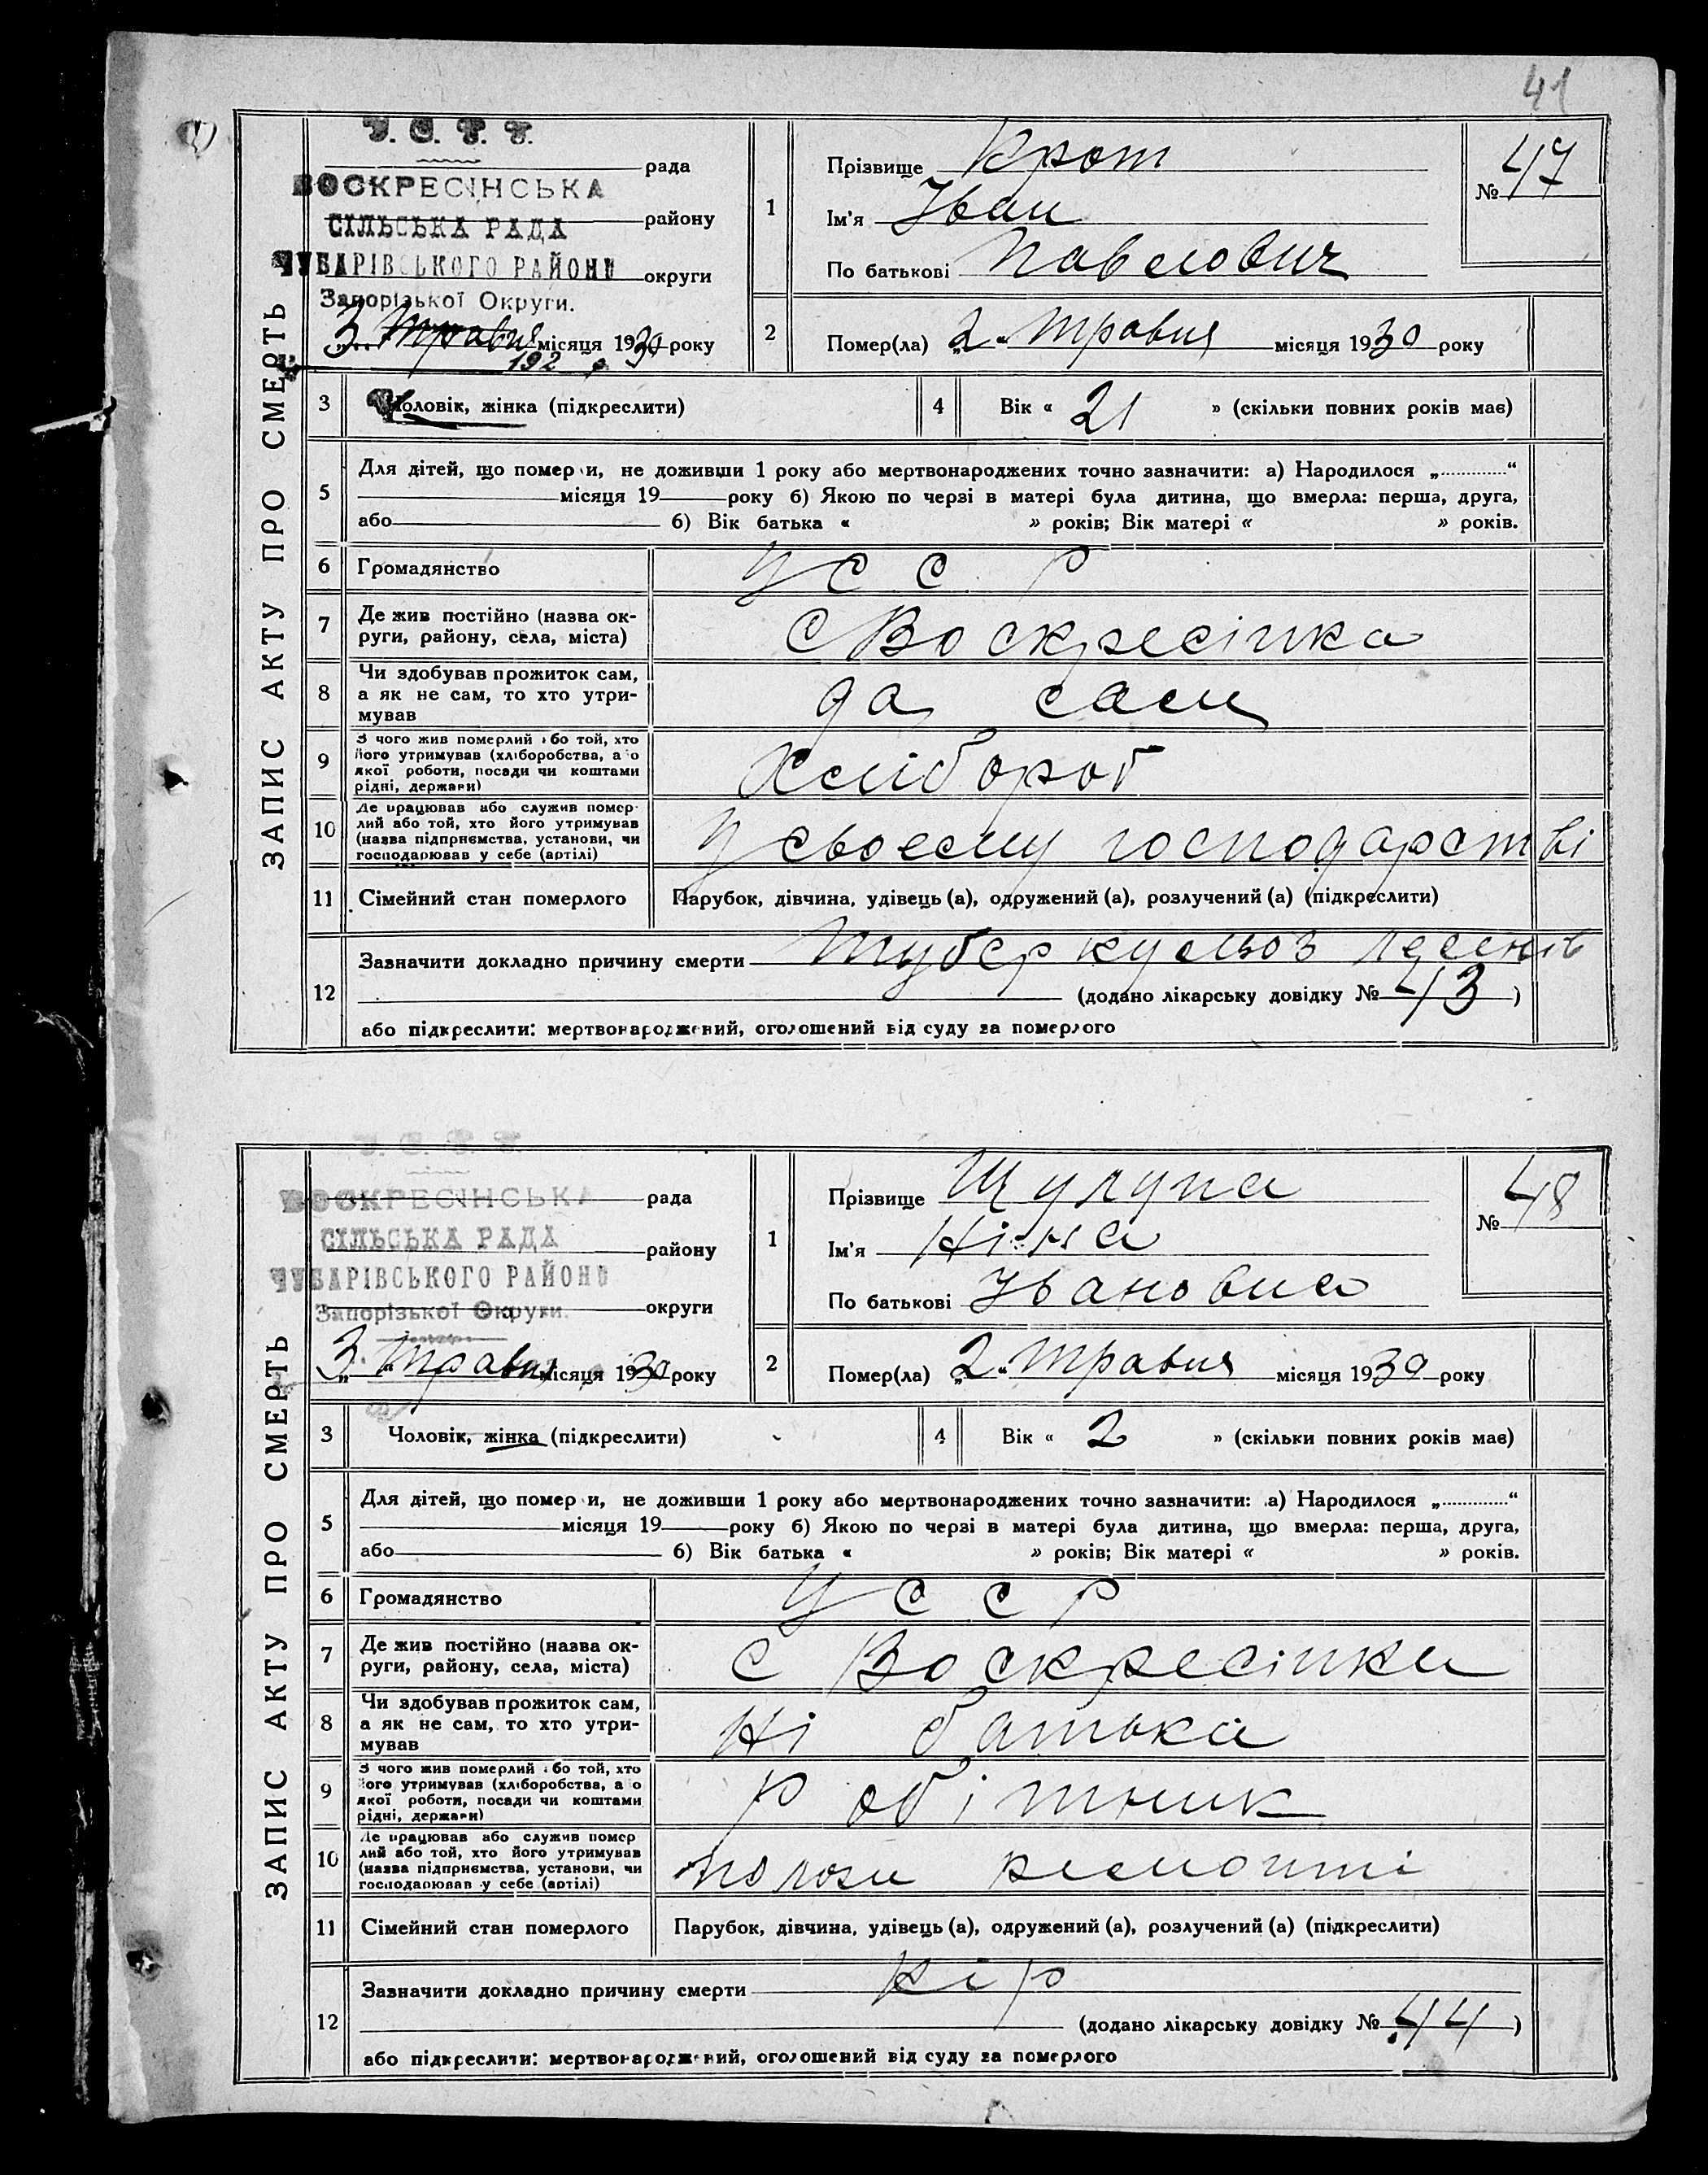 41
У. С. Р. Р.
рада
ВОСКРЕСІНСЬКА
СІЛЬСЬКА РАДА району
ЧУБАРІВСЬКОГО РАЙОНУ округи
Запорізької Округи.
3 Травня місяця 1930 року
192 р
ЗАПИС АКТУ ПРО СМЕРТЬ
1 Прізвище Крот
Ім'я Іван
По батькові Павелович
№ 47
2 Помер(ла) „2“ Травня місяця 1930 року
3 Чоловік, жінка (підкреслити)
4 Вік « 21 » (скільки повних років має)
5 Для дітей, що помер и, не доживши 1 року або мертвонароджених точно зазначити: а) Народилося „ “
місяця 19 року б) Якою по черзі в матері була дитина, що вмерла: перша, друга,
або б) Вік батька « » років; Вік матері « » років.
6 Громадянство УССР
7 Де жив постійно (назва ок-
руги, району, села, міста) С Воскресінка
8 Чи здобував прожиток сам,
а як не сам, то хто утри-
мував да сам
9 З чого жив померлий або той, хто
його утримував (хліборобства, або
якої роботи, посади чи коштами
рідні, держави) Хлібороб
10 Де працював або служив помер-
лий або той, хто його утримував
(назва підприємства, установи, чи
господарював у себе (артілі) У своєму господарстві
11 Сімейний стан померлого Парубок, дівчина, удівець (а), одружений (а), розлучений (а) (підкреслити)
12 Зазначити докладно причину смерти Туберкульоз легенів
(додано лікарську довідку № 43 )
або підкреслити: мертвонароджений, оголошений від суду за померлого
У. С. Р. Р.
ВОСКРЕСІНСЬКА рада
СІЛЬСЬКА РАДА району
ЧУБАРІВСЬКОГО РАЙОНУ
Запорізької Округи. округи
3 Травня місяця 1930 року
ЗАПИС АКТУ ПРО СМЕРТЬ
1 Прізвище Щулупа
Ім'я Ніна
По батькові Івановна
№ 48
2 Помер(ла) „2“ Травня місяця 1930 року
3 Чоловік, жінка (підкреслити)
4 Вік « 2 » (скільки повних років має)
5 Для дітей, що помер и, не доживши 1 року або мертвонароджених точно зазначити: а) Народилося „ “
місяця 19 року б) Якою по черзі в матері була дитина, що вмерла: перша, друга,
або б) Вік батька « » років; Вік матері « » років.
6 Громадянство УССР
7 Де жив постійно (назва ок-
руги, району, села, міста) С Воскресінка
8 Чи здобував прожиток сам,
а як не сам, то хто утри-
мував Ні батька
9 З чого жив померлий або той, хто
його утримував (хліборобства, або
якої роботи, посади чи коштами
рідні, держави) Робітник
10 Де працював або служив помер
лий або той, хто його утримував
(назва підприємства, установи, чи
господарював у себе (артілі) Пологи
11 Сімейний стан померлого Парубок, дівчина, удівець (а), одружений (а), розлучений (а) (підкреслити)
12 Зазначити докладно причину смерти Кір
(додано лікарську довідку № 44 )
або підкреслити: мертвонароджений, оголошений від суду за померлого